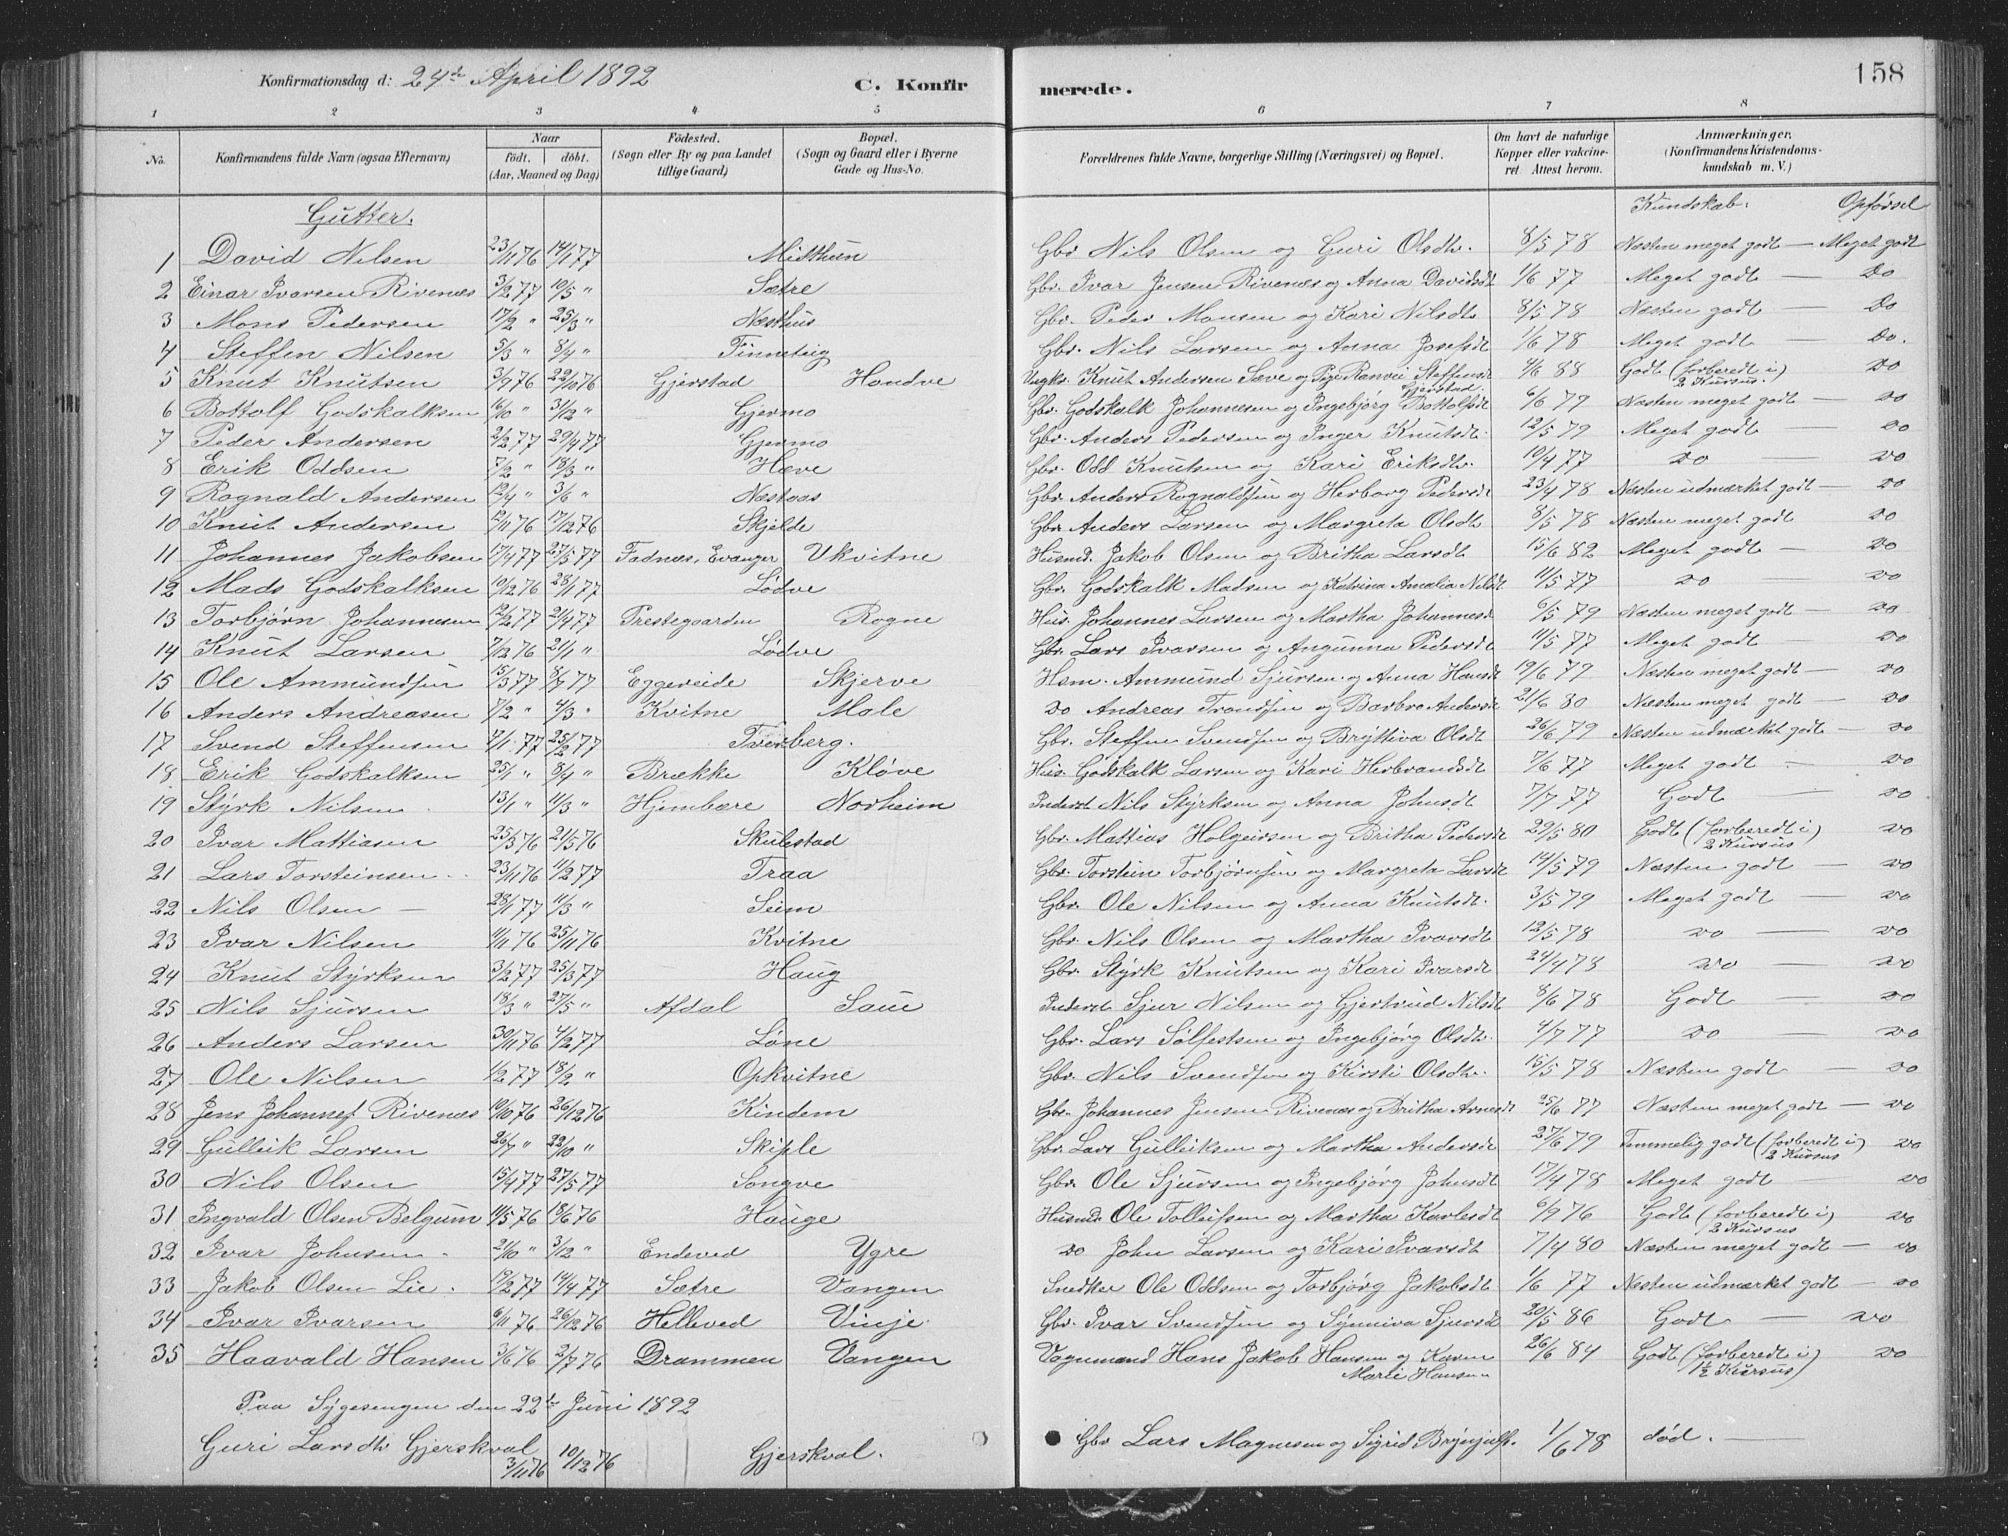 Konfirmationsdag d: 24de April 1892 C. Konfirmerede. 158
1 2 3 4 5 6 7 8
No. Konfirmandens fulde Navn (ogsaa Efternavn) Naar født. døbt. (Aar, Maaned og Dag) Fødested. (Sogn eller By og paa Landet tillige Gaard) Bopæl. (Sogn og Gaard eller i Byerne Gade og Hus-No. Forældrenes fulde Navne, borgerlige Stilling (Næringsvei) og Bopæl. Om havt de naturlige Kopper eller vakcineret. Attest herom. Anmærkninger. (Konfirmandens Kristendomskundskab m. V.)
Gutter. Kundskab. Opførsel
1 David Nilsen 23/11 76 14/1 77 Midthun Gbr Nils Olsen og Guri Olsdtr. 8/5 78 Næsten meget godt — Meget godt
2 Einar Ivarsen Rivenæs 3/2 77 10/5 " Sætre Gbr. Ivar Jensen Rivenæs og Anna Davidsdt 1/6 77 Meget godt — Do
3 Mons Pedersen 17/2 " 25/3 " Næsthus Gbr. Peder Monsen og Kari Nilsdt 8/5 78 Næsten godt — Do
4 Steffen Nilsen 5/3 " 8/4 " Finneteig Gbr. Nils Larsen og Anna Josefsdt 1/6 78 Meget godt — Do.
5 Knut Knutsen 3/9 76 22/10 76 Gjerstad Hondve Ungks. Knut Andersen Sæve og Pige Ranvei Steffensdt Gjerstad. 4/6 88 Godt (forberedt i 2 Kursus.) Do
6 Bottolf Godskalksen 16/10 " 31/12 " Gjermo Gbr. Godskalk Johannesen og Ingebjørg Bottolfsdt 6/6 79 Næsten meget godt — do
7 Peder Andersen 2/2 77 29/4 77 Gjermo Gbr. Anders Pedersen og Inger Knutsdt. 12/5 79 Meget godt — do
8 Erik Oddsen 7/2 " 18/3 " Hæve Gbr. Odd Knutsen og Kari Eriksdtr. 10/4 77 do — do
9 Rognald Andersen 12/4 " 3/6 " Næstaas Gbr. Anders Rognaldsen og Herborg Pedersdt 23/4 78 Næsten udmærket godt — do
10 Knut Andersen 12/11 76 17/12 76 Skjelde Gbr. Anders Larsen og Margreta Olsdt. 8/5 78 Næsten meget godt do
11 Johannes Jakobsen 17/4 77 27/5 77 Fadnæs, Evanger Ukvitne Husmd. Jakob Olsen og Britha Larsdt 15/6 82 Meget godt — do
12 Mads Godskalksen 10/12 76 28/1 77 Lødve Gbr. Godskalk Madsen og Katrina Amalia Nilsdt 11/5 77 do do
13 Torbjørn Johannesen 12/2 77 21/4 77 Prestegaarden Rogne Hus. Johannes Larsen og Martha Johannesd 6/5 79 Næsten meget godt — do
14 Knut Larsen 7/12 76 21/1 " Lødve Gbr. Lars Ivarsen og Angunna Pedersdt 11/5 77 Meget godt — do
15 Ole Ammundsen 15/3 77 8/7 77 Eggereide Skjerve Hsm. Ammund Sjursen og Anna Hansdt 19/6 79 Næsten meget godt — do
16 Anders Andreasen 7/2 " 4/3 " Kvitne Male do Andreas Trondsen og Barbro Andersdt 21/6 80 Næsten meget godt — do
17 Svend Steffensen 7/1 77 25/2 77 Tverberg. Gbr. Steffen Svendsen og Bryttiva Olsdt 26/6 79 Næsten udmærket godt — do
18 Erik Godskalksen 25/1 " 8/4 " Brække Kløve Hus. Godskalk Larsen og Kari Herbrandsdt 7/6 77 Meget godt do
19 Styrk Nilsen 13/1 " 11/3 " Hjembære Norheim Inderst Nils Styrksen og Anna Johnsdt 7/7 77 Godt — do
20 Ivar Mattiasen 25/3 76 21/5 76 Skulestad Gbr. Mattias Holgeirsen og Britha Pedersdt 29/5 80 Godt (forberedt i 2 Kursus) do
21 Lars Torsteinsen 23/11 76 11/2 77 Traa Gbr. Torstein Torbjørnsen og Margreta Larsdt 14/5 79 Næsten godt — do
22 Nils Olsen — 28/1 77 11/3 " Seim Gbr. Ole Nilsen og Anna Knutsdt. 3/5 79 Meget godt — do
23 Ivar Nilsen 11/11 76 25/11 76 Kvitne Gbr. Nils Olsen og Martha Ivarsdt 12/5 78 do — do
24 Knut Styrksen 3/2 77 25/3 77 Haug Gbr. Styrk Knutsen og Kari Ivarsdt 24/4 78 do — do
25 Nils Sjursen 18/3 " 27/5 " Afdal Saue Inderst Sjur Nilsen og Gjertrud Nilsdt 8/6 78 Godt — do
26 Anders Larsen 30/11 76 4/2 77 Løne Gbr. Lars Sølfestsen og Ingebjørg Olsdt. 4/7 77 do — do
27 Ole Nilsen 1/2 77 18/2 " Opkvitne Gbr. Nils Svendsen og Kirsti Olsdtr. 15/5 78 Næsten godt — do
28 Jens Johannes Rivenæs 19/10 76 26/12 76 Kindem Gbr. Johannes Jensen Rivenæs og Britha Arnesdt 25/6 77 Næsten meget godt — do
29 Gulleik Larsen 26/7 " 22/10 " Skiple Gbr. Lars Gulleiksen og Martha Andersdt 27/6 79 Temmelig godt (forberedt i 2 Kursus) do
30 Nils Olsen 15/4 77 27/5 77 Songve Gbr. Ole Sjursen og Ingebjørg Johnsdt 17/4 78 Meget godt — do
31 Ingvald Olsen Belgum 11/5 76 18/6 76 Hauge Husmd. Ole Tolleifsen og Martha Karlesdt 6/9 76 Godt (forberedt i 2 Kursus) do
32 Ivar Johnsen 21/10 " 3/12 " Endeved Ygre do John Larsen og Kari Ivarsdt 7/4 80 Næsten meget godt — do
33 Jakob Olsen Lie 19/2 77 14/4 77 Sætre Vangen Snedker Ole Oddsen og Torbjørg Jakobsdt 1/6 77 Næsten udmærket godt — do
34 Ivar Ivarsen 6/11 76 26/12 76 Helleved Vinje Gbr. Ivar Svendsen og Synniva Sjursdt 20/5 86 Godt — do
35 Haavald Hansen 3/6 76 2/7 76 Drammen Vangen Vognmand Hans Jakob Hansen og Karen Marie Hansen 26/6 84 Godt (forberedt i 1½ Kursus) do
Paa Sygesengen den 22de Juni 1892
Guri Larsdtr Gjerskval 3/11 76 10/12 76 Gjerskval. Gbr Lars Magnesen og Sigrid Brynjulfs. 1/6 78 død. —